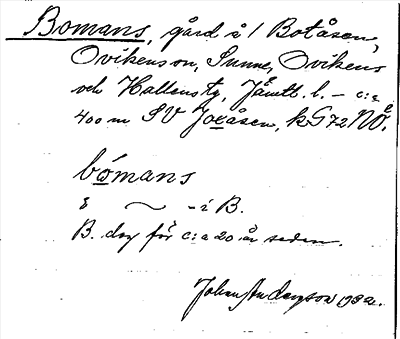 Bomans, gård å 1 Botåsen,
Ovikens sn, Sunne, Ovikens
och Hallens tg, Jämtl. l. – c:a
400 m SV Joxåsen, kG72NO.
bómans
ε ⁓ - i B.
B. dog för c:a 20 år sedan.
Johan Andersson 1932.